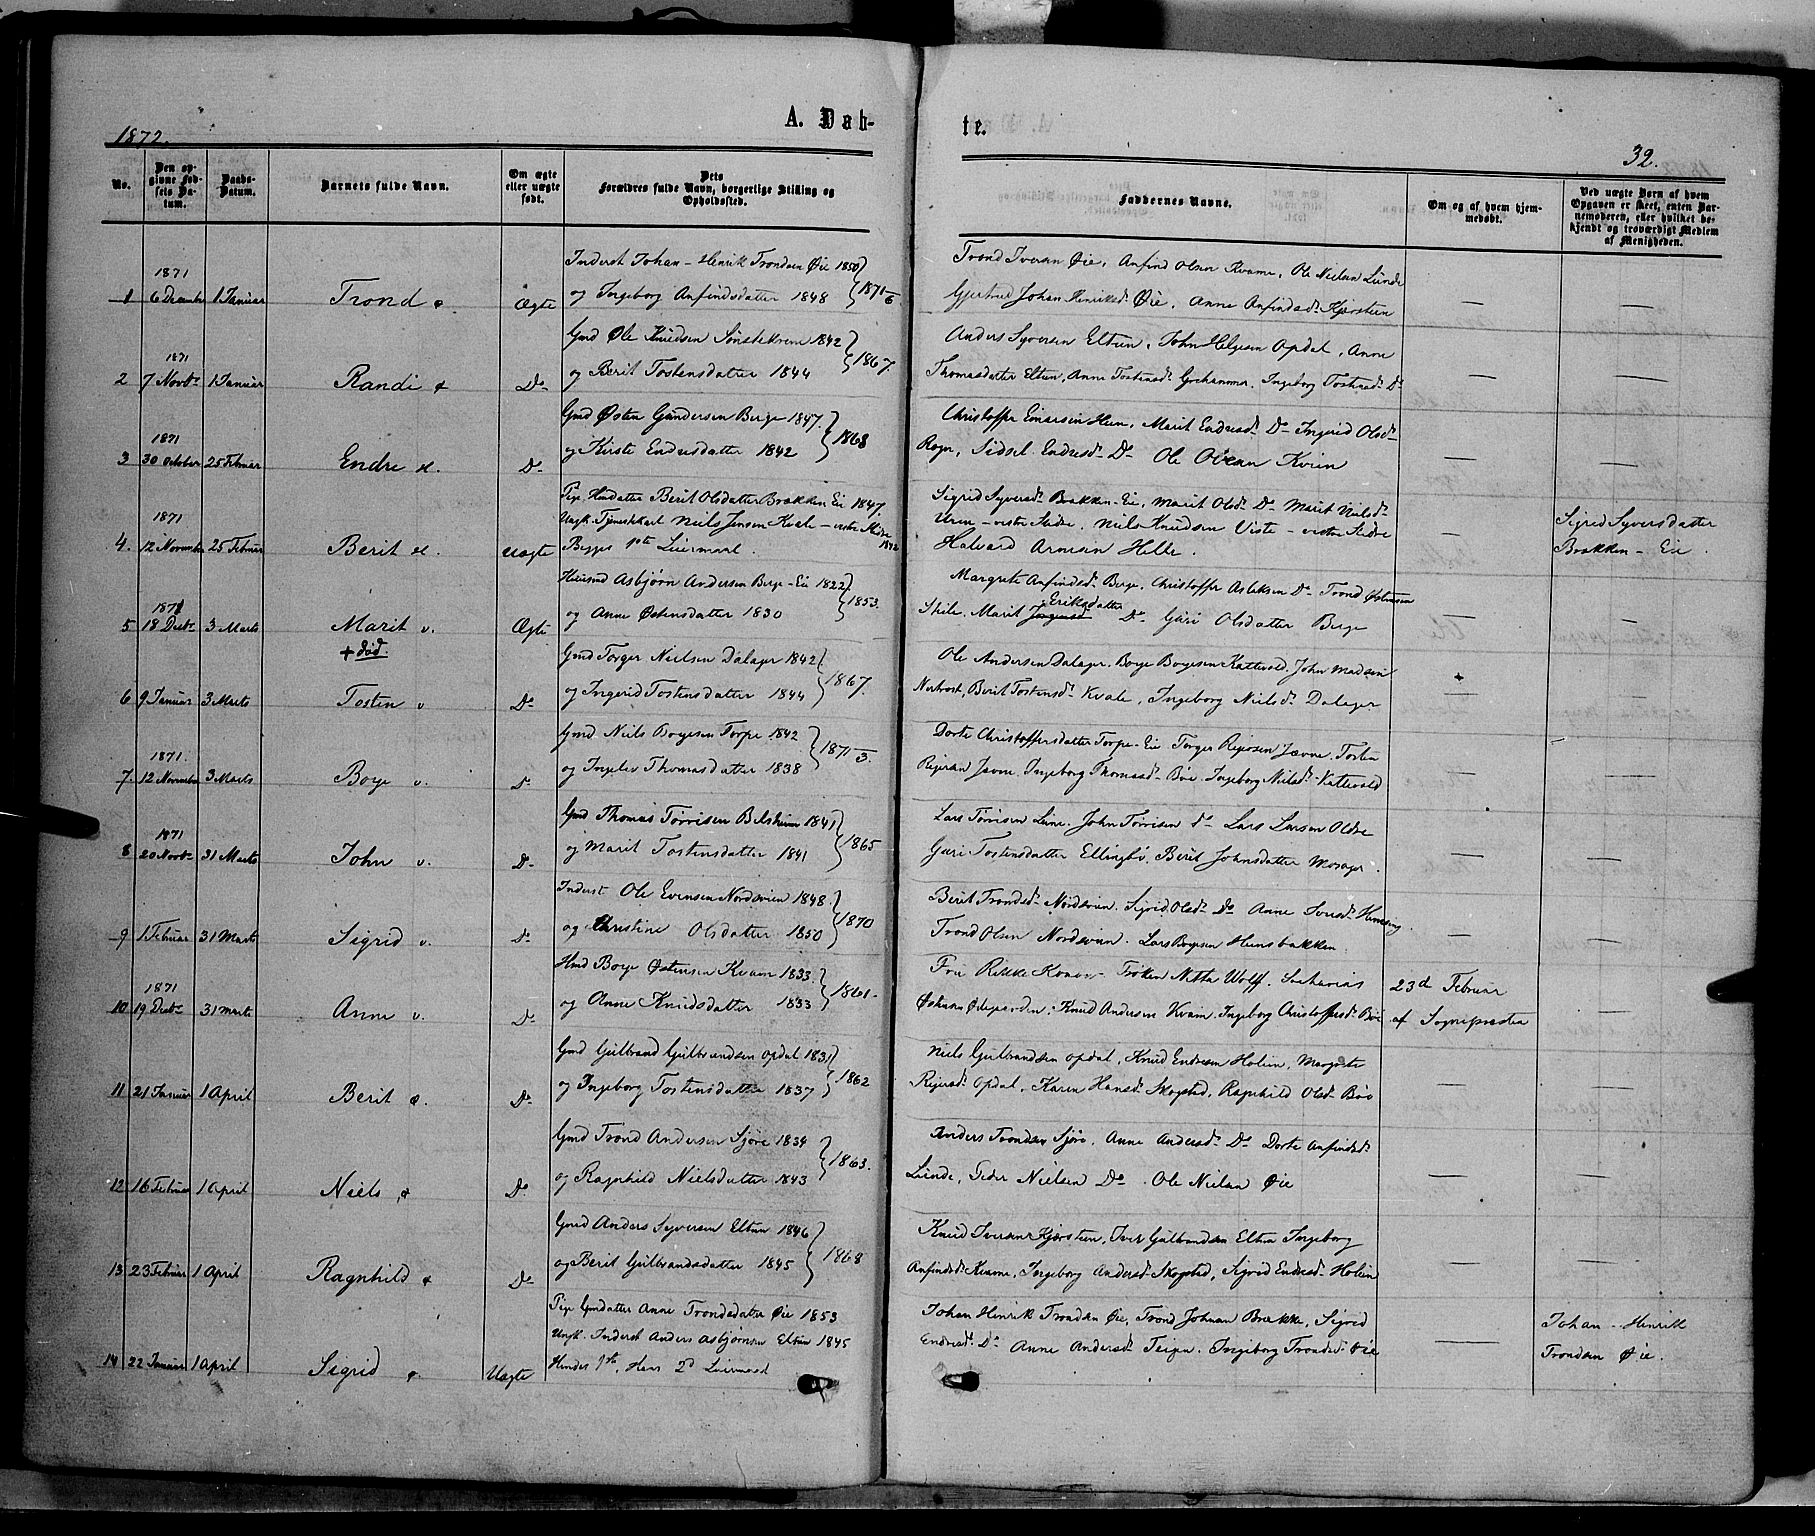 1872.
A. Dab-
te.
32.
No.
Den op-
givne Fød-
sels Da-
tum.
Daabs-
Datum.
Barnets fulde Navn.
Om ægte
eller uægte
født.
Dets
Forældres fulde Navn, borgerlige Stilling og
Opholdssted.
Faddernes Navne.
Om og af hvem hjem-
medøbt.
Ved uægte Børn af hvem
Opgaven er skeet, enten Bar-
nemoderen, eller hvilket be-
kjendt og troværdigt Medlem
af Menigheden.
1871
1 6 December 1 Januar Trond Ægte
Inderst Johan-Henrik Trondsen Øie 1850
og Ingeborg Anfindsdatter 1848 1871
Trond Iversen Øie, Anfind Olsen Kvame, Ole Nielsen Lunde
Gjertrud Johan Henriksd. Øie, Anne Anfindsd. Kjørstein
— —
1871
2 7 Novbr 1 Januar Randi Do
Gmd Ole Knudsen 1842
og Berit Tostensdatter 1844 1867.
Anders Syversen Eltun, John Helgesen Opdal, Anne
Thomasdatter Eltun, Anne Tostensd. Ingeborg Tostensd. Do
— —
1871
3 30 October 25 Februar Endre Do
Gmd Østen Gundersen Berge 1847.
og Kirste Endresdatter 1842 1868
Christoffer Einarsen Hem, Marit Endresd. Do Ingerid Olsd.
Rogn, Sidsel Endresd. Do Ole Kvien
— —
1871
4. 12 November 25 Februar Berit Uægte
Pige Husdatter Berit Olsdatter Brækken Eie 1847.
Ungk. Tjenestekarl Niels Jensen Kvale – vestre Slidre
1842
Begges 1ste Leiermaal.
Sigrid Syversd. Brækken-Eie, Marit Olsd. Do Marit Nielsd.
Uren – vestre Slidre, Niels Knudsen Viste – vestre Slidre
Halvard Arnesen Helle.
—
Sigrid Syversdatter
Brækken – Eie.
1871
5 18 Decbr 3 Marts Marit v. Ægte
+ død.
Huusmd Asbjørn Andersen Berge-Eie 1822
og Anne Østensdatter 1830 1853.
Margrete Anfindsd. Berge, Christoffer Aslaksen Do Trond Østensen
Eriksdatter
Skile, Marit Do Guri Olsdatter Berge
— —
6 9 Januar 3 Marts Tosten v Do
Gmd Torger Nielsen Dalager 1842
og Ingerid Tostensdatter 1844 1867.
Ole Andersen Dalager, Boye Boyesen Kattevold, John Madsen
Berit Tostensd. Kvale, Ingeborg Nielsd. Dalager
— —
1871.
7. 12 November 3 Marts Boye v. Do
Gmd Niels Boyesen Torpe 1842
og Ingelev Thomasdatter 1838 1871
Dorte Christoffersdatter Torpe-Eie Torger Reiersen Jævne, Tosten
Reiersen Jævne, Ingeborg Thomasd. Bøe, Ingeborg Nielsd. Kattevold
— —
1871
8 20 Novbr 31 Marts John v. Do
Gmd Thomas Torrisen Belsheim 1841
og Marit Tostensdatter 1841 1865
Lars Torrisen Lune. John Torrisen Do Lars Larsen Oldre
Guri Tostensdatter Ellingbø, Berit Johnsdatter Mosager.
— —
9 1 Februar 31 Marts Sigrid v. Do
Inderst Ole Evensen Nordsvien 1848
og Christine Olsdatter 1850 1870
Berit Trondsd. Nordsvien. Sigrid Olsd. Do Anne
Trond Olsen Nordsvien. Lars Boyesen Hemsbakken.
— —
1871
10 19 Decbr 31 Marts Anne v. Do
Hmd Boye Østensen Kvam 1833.
og Anne Knudsdatter 1833 1861.
Frue Rikke Konow – Frøken Nitta Wolff. Sacharias
Østensen Øiegarden, Knud Andersen Kvam, Ingeborg Christoffersd. Bøe
23d Februar
af Sognepresten
—
11 21 Januar 1 April Berit Do
Gmd Gulbrand Gulbrandsen Opdal 1831
og Ingeborg Tostensdatter 1837 1862
Niels Gulbrandsen Opdal, Knud Endresen Holien, Margrete
Reiersd. Opdal, Karen Hansd. Skogstad, Ragnhild Olsd. Bøe
— —
12 16 Februar 1 April Niels Do
Gmd Trond Andersen Sjøre 1834
og Ragnhild Nielsdatter 1843 1863.
Anders Trondsen Sjøre, Anne Andersd. Do Dorte Anfindsd.
Lunde, Peder Nielsen Do. Ole Nielsen Øie
— —
13 23 Februar 1 April Ragnhild Do
Gmd Anders Syversen Eltun 1846
og Berit Gulbrandsdatter 1845 1868
Knud Iversen Kjørstein, Iver Gulbrandsen Eltun Ingeborg
Anfindsd. Kvame, Ingeborg Andersd. Skogstad, Sigrid Endresd. Holien
— —
14 22 Januar 1 April Sigrid Uægte
Pige Gmdatter Anne Trondsdatter Øie 1853
Ungk. Inderst Anders Asbjørnsen Eltun 1845
Hendes 1ste, Hans 2d Leiermaal
Johan Henrik Trondsen Øie, Trond Johnsen Brække, Sigrid
Endresd. Do Anne Andersd. Teigen, Ingeborg Trondsd. Øie
—
Johan – Henrik
Trondsen Øie.